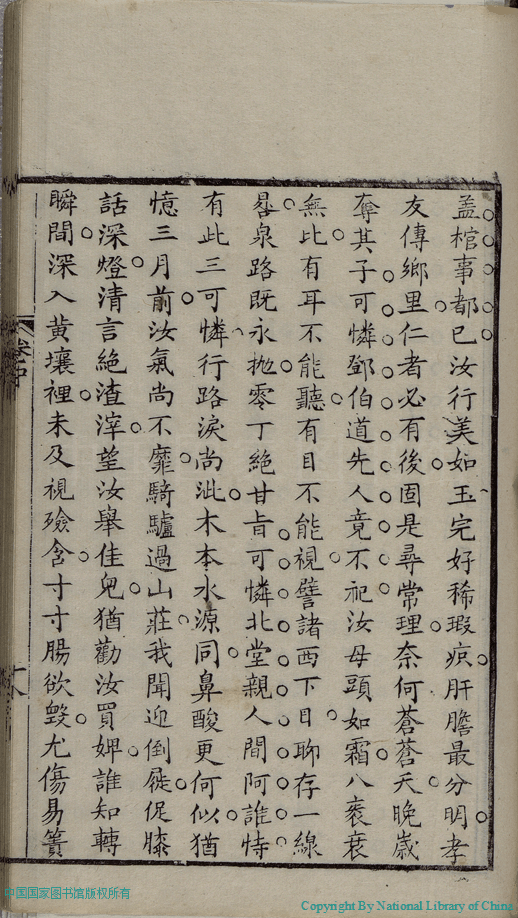 蓋棺事都已汝行美如玉完好稀瑕疻肝膽最分明孝
友傳鄉里仁者必有後固是尋常理奈何蒼蒼天晚歲
奪其子可憐鄧伯道先人竟不祀汝母頭如霜八袠衰
無比有耳不能聽有目不能視譬諸西下日聊存一線
晷泉路既永拋零丁絕甘旨可憐北堂親人間阿誰恃
有此三可憐行路淚尚泚木本水源同鼻酸更何似猶
憶三月前汝氣尚不靡騎驢過山莊我聞迎倒屣促膝
話深燈清言絕渣滓望汝舉佳兒猶勸汝買婢誰知轉
瞬間深入黃壤裡未及視殮含寸寸腸欲毀尤傷易簀
卷中
十八
中国国家图书馆版权所有
Copyright By National Library of China